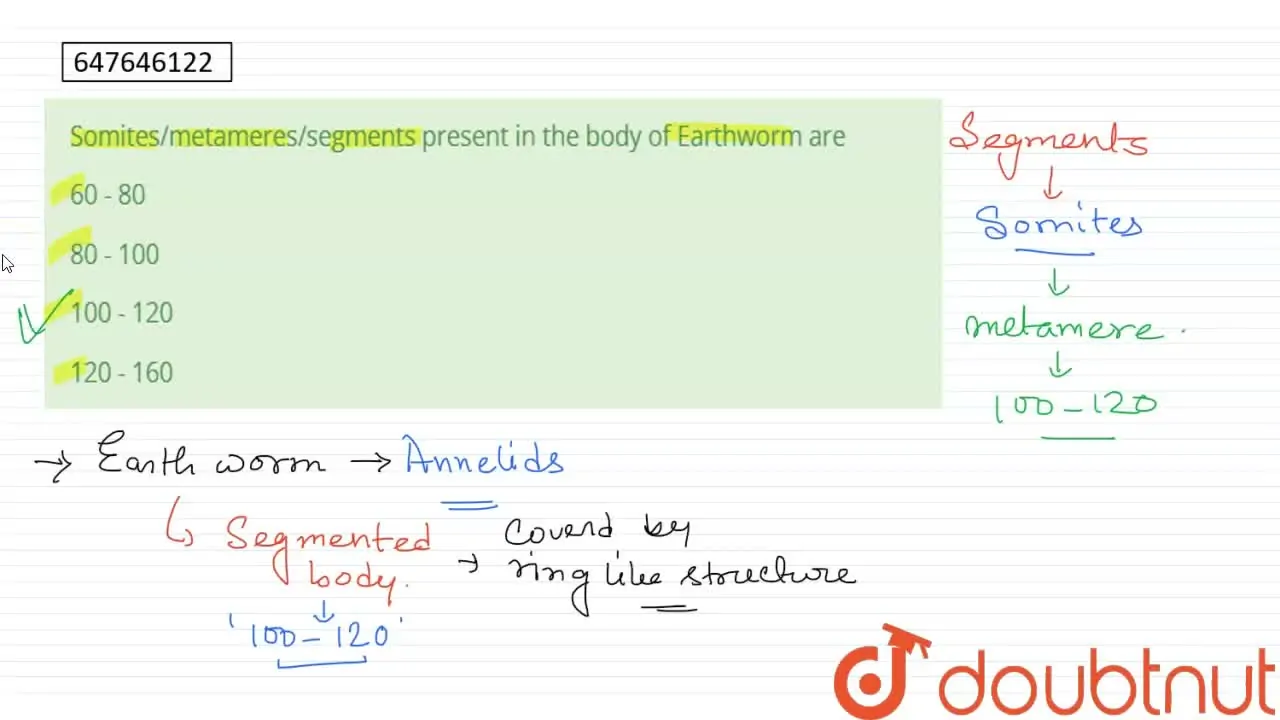 647646122
Somites/metameres/segments present in the body of Earthworm are
60 - 80
80 - 100
100 - 120
120 - 160
Segments
↓
Somites
↓
metamere
↓
100 - 120
→ Earth worm → Annelids
Segmented
body.
→ Coverd by
ring like structure
↓
'100 - 120'
doubtnut